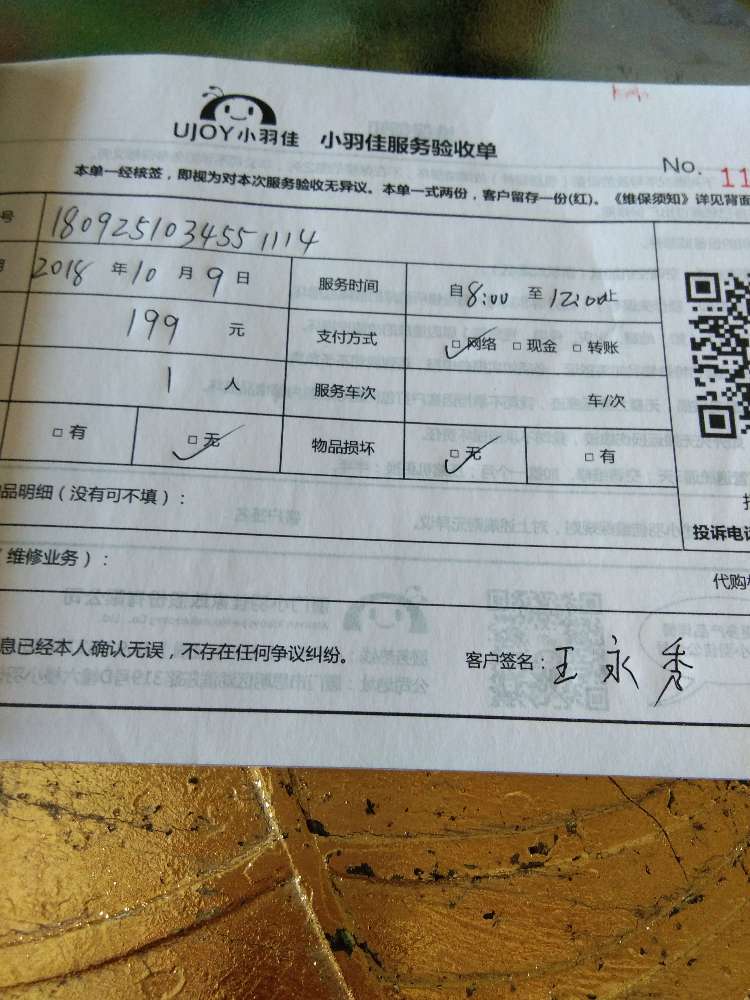 UJOY小羽佳 小羽佳服务验收单
No. 11
本单一经核签，即视为对本次服务验收无异议。本单一式两份，客户留存一份(红)。《维保须知》详见背面
号 180925103455 1114
2018 年 10 月 9 日 服务时间 自8:00 至 12:00止
199 元 支付方式 □网络 □现金 □转账
1 人 服务车次 车/次
□有 □无 物品损坏 □无 □有
品明细（没有可不填）：
投诉电话
维修业务）：
代购
息已经本人确认无误，不存在任何争议纠纷。 客户签名：王永秀